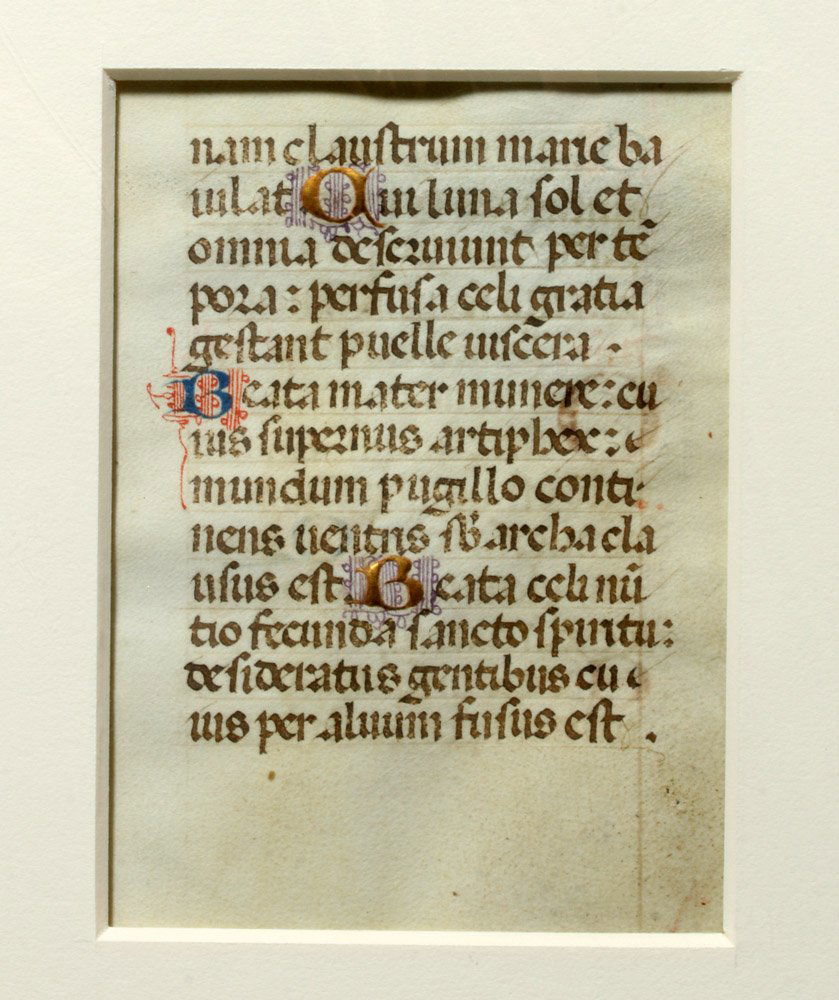 nam claustrum marie ba
iulat. Qui luna sol et
omnia deseruiunt per tē
pora: perfusa celi gratia
gestant puelle uiscera.
Beata mater munere: cu
ius supernus artiphex:
mundum pugillo conti
nens uentris sb̄ archa cla
usus est. Beata celi nū
tio fecunda sancto spiritu:
desideratus gentibus cu
ius per aluum fusus est.